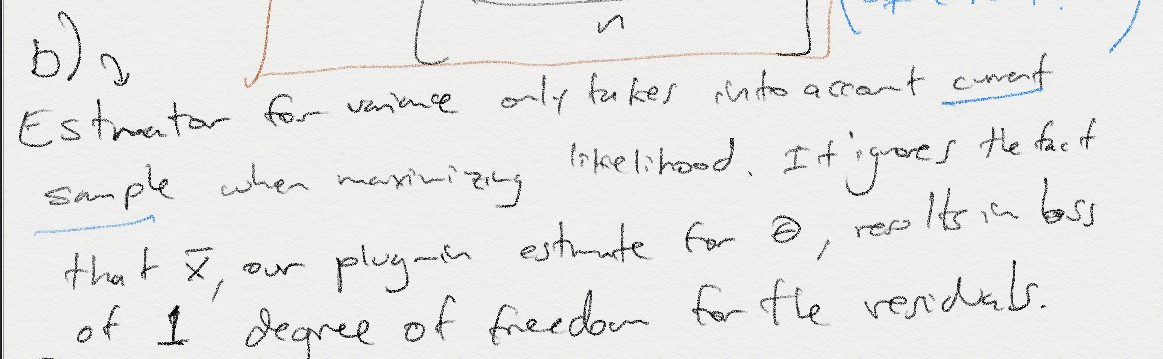 n
b)
Estimator for variance only takes into account current
sample when maximizing likelihood. It ignores the fact
that x̄, our plug-in estimate for θ, results in loss
of 1 degree of freedom for the residuals.